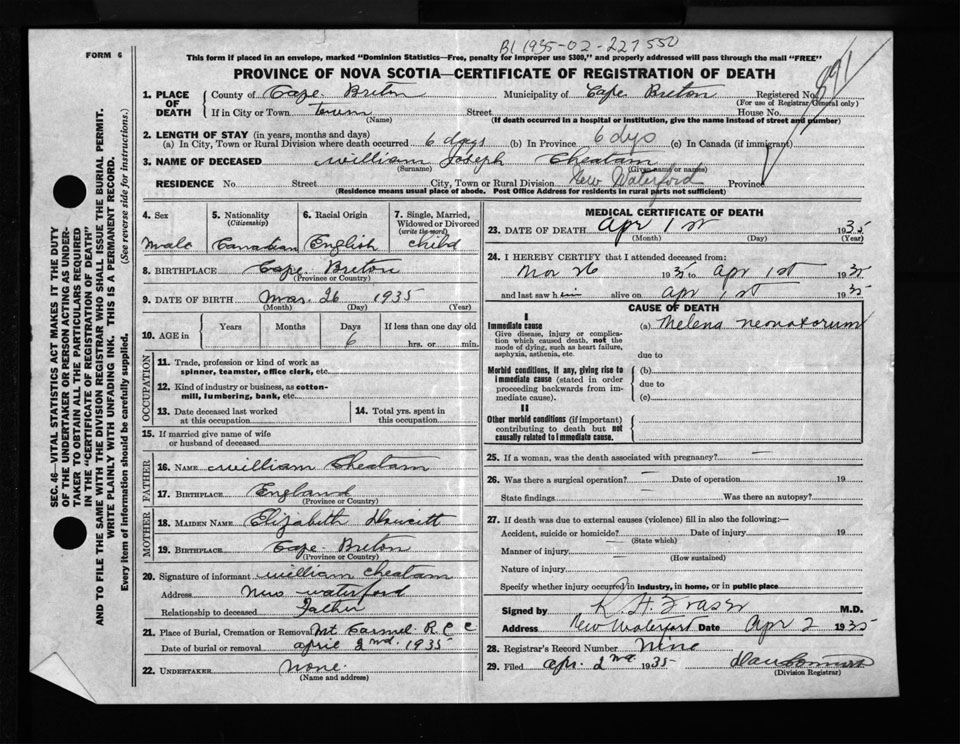 B1 1935-02-227550
FORM 6
This form if placed in an envelope, marked "Dominion Statistics—Free, penalty for improper use $300," and properly addressed will pass through the mail "FREE"
PROVINCE OF NOVA SCOTIA—CERTIFICATE OF REGISTRATION OF DEATH
891
1. PLACE OF DEATH County of Cape Breton Municipality of Cape Breton Registered No.
(For use of Registrar General only)
If in City or Town Town Street House No.
(Name) (If death occurred in a hospital or institution, give the name instead of street and number)
2. LENGTH OF STAY (in years, months and days)
(a) In City, Town or Rural Division where death occurred 6 days (b) In Province 6 dys (c) In Canada (if immigrant)
3. NAME OF DECEASED William Joseph Cheatam
(Surname) (Given name or names)
RESIDENCE No. Street City, Town or Rural Division New Waterford Province
(Residence means usual place of abode. Post Office Address for residents in rural parts not sufficient)
SEC. 46—VITAL STATISTICS ACT MAKES IT THE DUTY
OF THE UNDERTAKER OR PERSON ACTING AS UNDER-
TAKER TO OBTAIN ALL THE PARTICULARS REQUIRED
IN THE "CERTIFICATE OF REGISTRATION OF DEATH"
AND TO FILE THE SAME WITH THE DIVISION REGISTRAR WHO SHALL ISSUE THE BURIAL PERMIT.
WRITE PLAINLY WITH UNFADING INK. THIS IS A PERMANENT RECORD.
Every item of information should be carefully supplied. (See reverse side for instructions.)
4. Sex
Male
5. Nationality
(Citizenship)
Canadian
6. Racial Origin
English
7. Single, Married,
Widowed or Divorced
(write the word)
child
8. BIRTHPLACE Cape Breton
(Province or Country)
9. DATE OF BIRTH Mar. 26 1935
(Month) (Day) (Year)
10. AGE in Years Months Days If less than one day old
6 hrs. or min.
OCCUPATION
11. Trade, profession or kind of work as
spinner, teamster, office clerk, etc.
12. Kind of industry or business, as cotton-
mill, lumbering, bank, etc.
13. Date deceased last worked
at this occupation
14. Total yrs. spent in
this occupation
15. If married give name of wife
or husband of deceased
FATHER
16. NAME William Cheatam
17. BIRTHPLACE England
(Province or Country)
MOTHER
18. MAIDEN NAME Elizabeth
19. BIRTHPLACE Cape Breton
(Province or Country)
20. Signature of informant William Cheatam
Address New Waterford
Relationship to deceased Father
21. Place of Burial, Cremation or Removal Mt Carmel R C C
Date of burial or removal April 2nd 1935
22. UNDERTAKER None.
(Name and address)
MEDICAL CERTIFICATE OF DEATH
23. DATE OF DEATH Apr 1st 1935
(Month) (Day) (Year)
24. I HEREBY CERTIFY that I attended deceased from:
Mar 26 1935 to Apr 1st 1935
and last saw him alive on Apr 1st 1935
CAUSE OF DEATH
I
Immediate cause (a) Melena neonatorum
Give disease, injury or complica-
tion which caused death, not the
mode of dying, such as heart failure,
asphyxia, asthenia, etc. due to
Morbid conditions, if any, giving rise to
immediate cause (stated in order
proceeding backwards from im-
mediate cause).
(b)
due to
(c)
II
Other morbid conditions (if important)
contributing to death but not
causally related to immediate cause.
25. If a woman, was the death associated with pregnancy? —
26. Was there a surgical operation? — Date of operation 19
State findings — Was there an autopsy?
27. If death was due to external causes (violence) fill in also the following:—
Accident, suicide or homicide? Date of injury 19
(State which)
Manner of injury
(How sustained)
Nature of injury
Specify whether injury occurred in industry, in home, or in public place
Signed by R. H. Fraser M.D.
Address New Waterford Date Apr 2 1935
28. Registrar's Record Number Nine
29. Filed Apr. 2nd 1935
(Division Registrar)